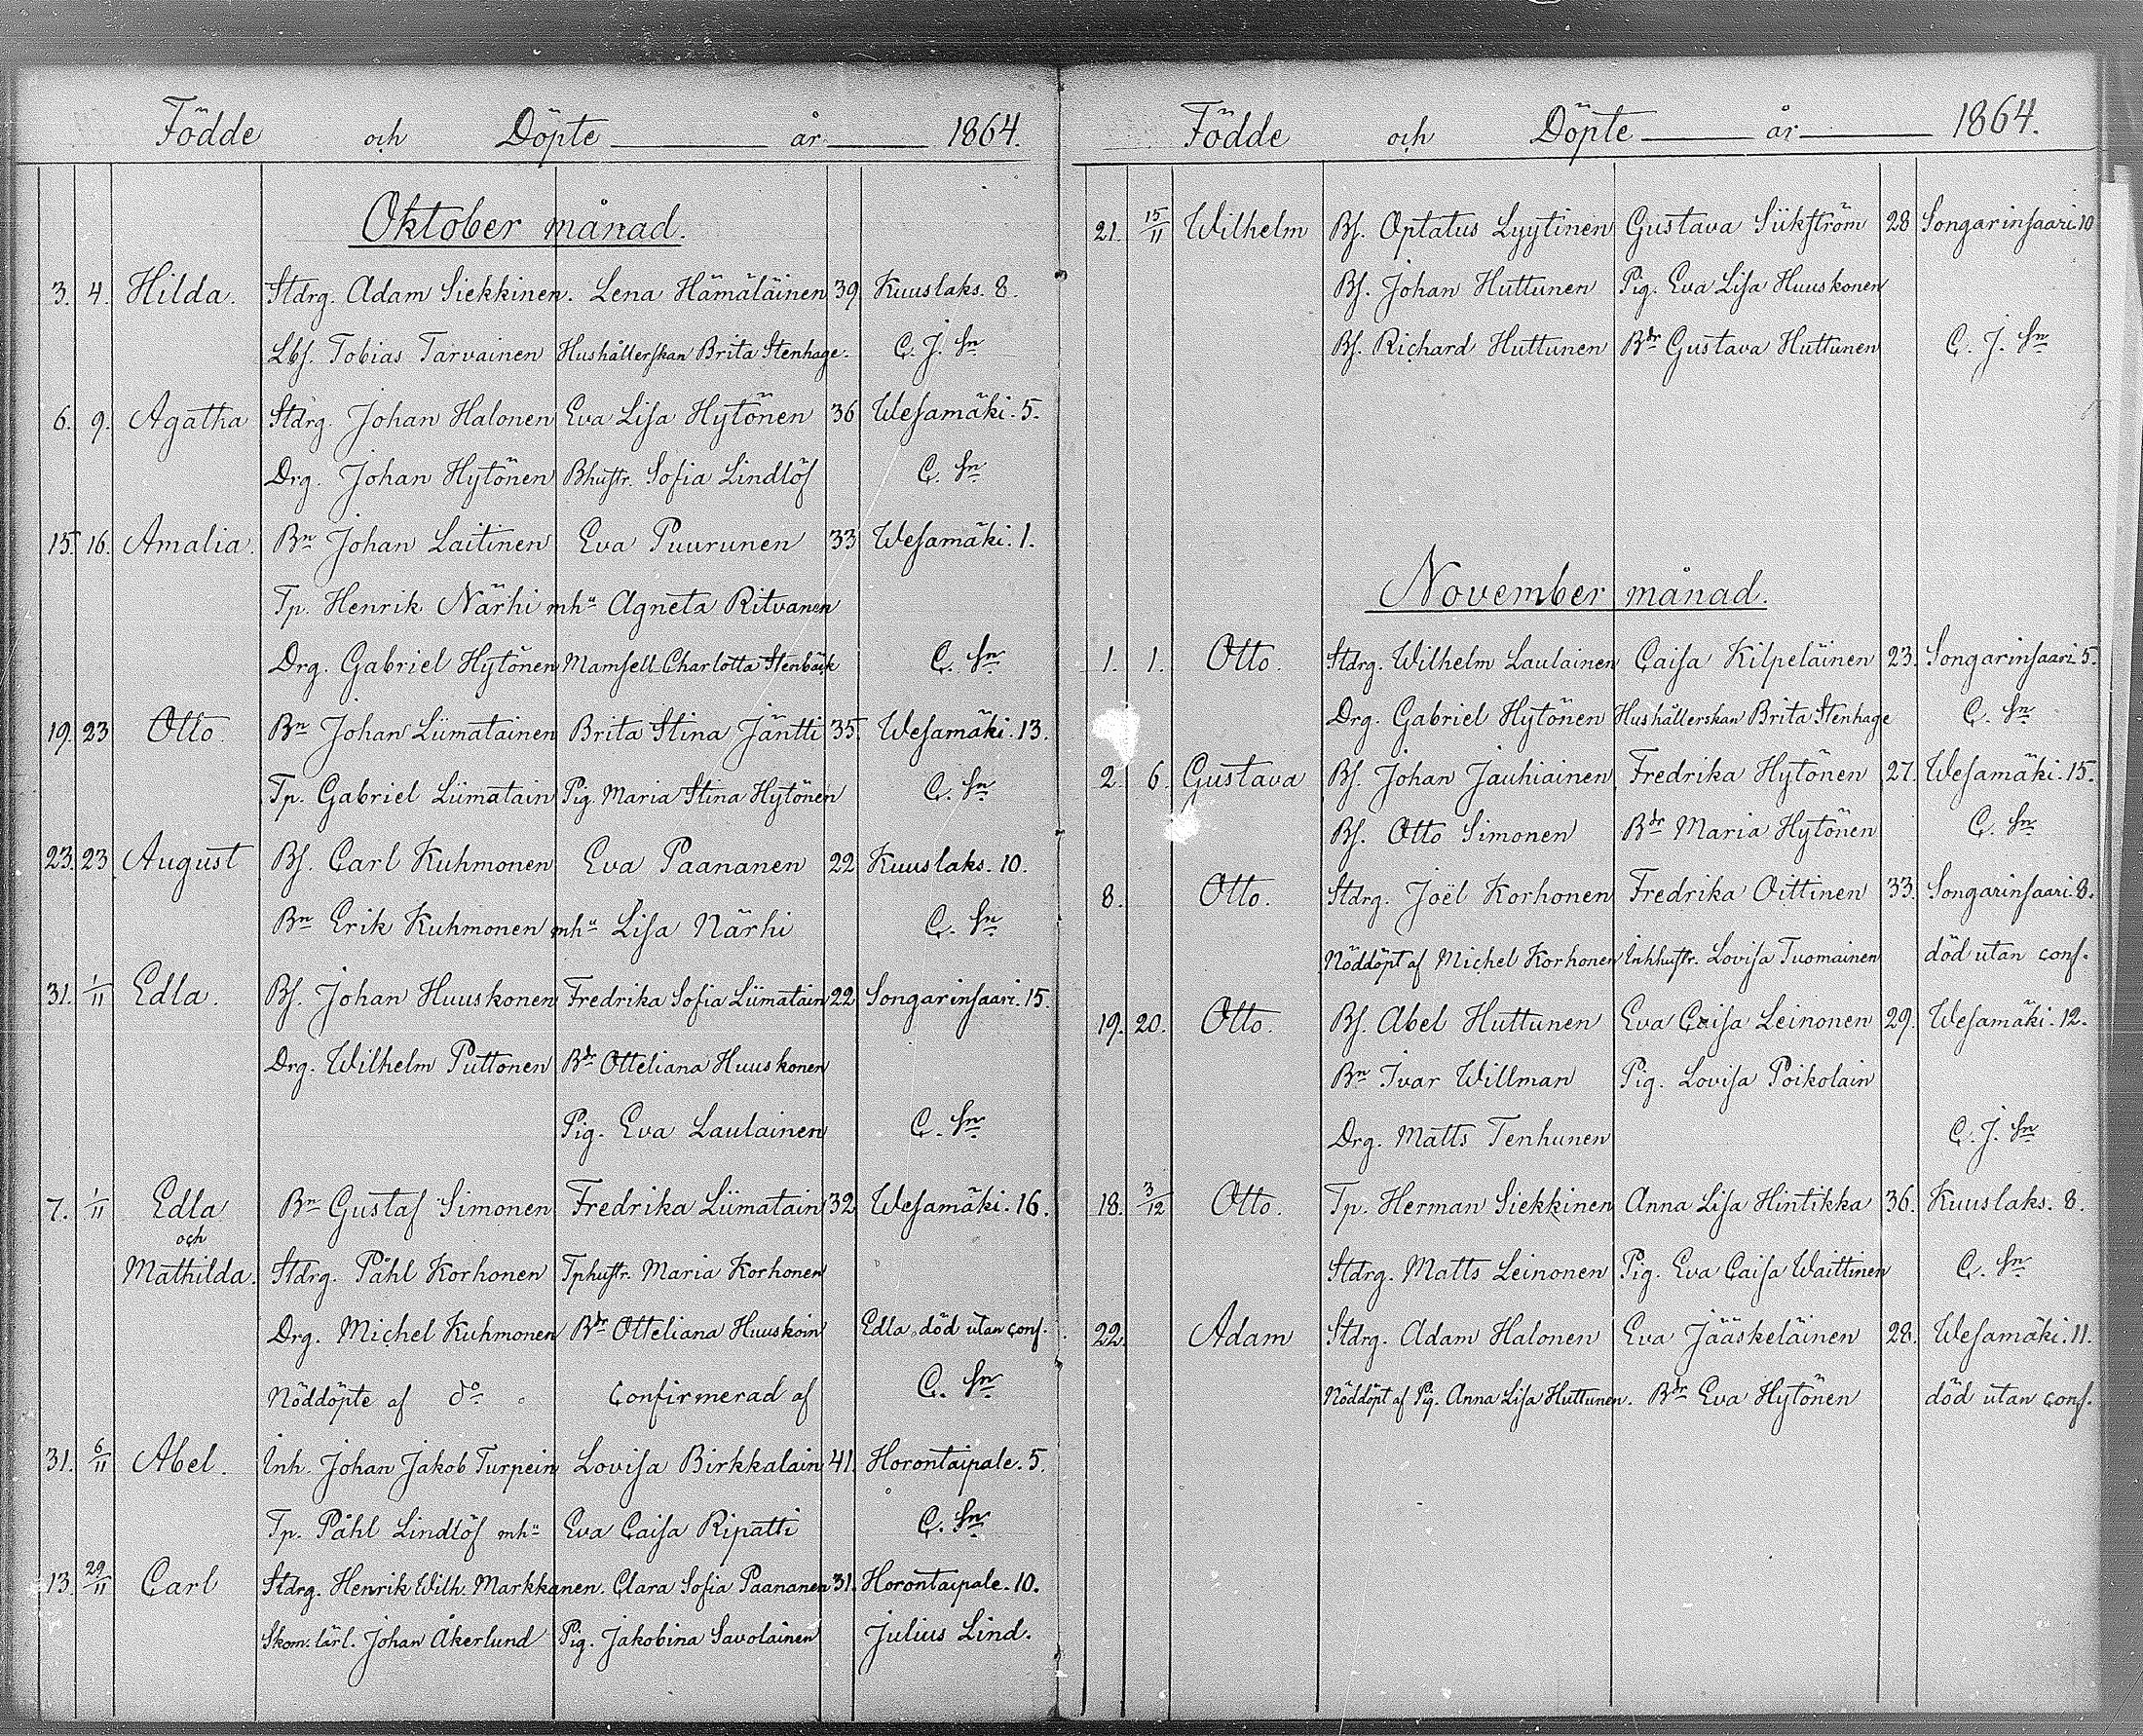 Födde och Döpte år 1864.
Oktober månad.
3. 4. Hilda. Stdrg. Adam Siekkinen. Lena Hämäläinen 39 Kuuslaks. 8.
Lbs. Tobias Tarvainen Hushållerskan Brita Stenhage. C. J. Sn
6. 9. Agatha Stdrg. Johan Halonen Eva Lisa Hytönen 36 Wesamäki. 5.
Drg. Johan Hytönen Bhustr. Sofia Lindlöf C. Sn
15. 16. Amalia. Bn Johan Laitinen Eva Puurunen 33 Wesamäki. 1.
Tp. Henrik Närhi mhu Agneta Ritvanen
Drg. Gabriel Hytönen Mamsell Charlotta Stenbäck C. Sn
19. 23 Otto Bn Johan Liimatainen Brita Stina Jäntti 35. Wesamäki. 13.
Tp. Gabriel Liimatain Pig. Maria Stina Hytönen C. Sn
23. 23 August Bs. Carl Kuhmonen Eva Paananen 22 Kuuslaks. 10.
Bn Erik Kuhmonen mhu Lisa Närhi C. Sn
31. 1/11 Edla. Bs. Johan Huuskonen Fredrika Sofia Liimatain 22 Songarinsaari. 15.
Drg. Wilhelm Puttonen Bdr Otteliana Huuskonen
Pig. Eva Laulainen C. Sn
7. 1/11 Edla Bn Gustaf Simonen Fredrika Liimatain 32 Wesamäki. 16.
och
Mathilda. Stdrg. Påhl Korhonen Tphustr. Maria Korhonen
Drg. Michel Kuhmonen Bdr Otteliana Huuskoin Edla död utan conf.
Nöddöpte af do Confirmerad af C. Sn
31. 6/11 Abel. Inh. Johan Jakob Turpein Lovisa Birkkalain 41. Horontaipale. 5.
Tp. Påhl Lindlöf mhu Eva Caisa Ripatti C. Sn
13. 29/11 Carl Stdrg. Henrik Wilh. Markkanen. Clara Sofia Paananen 31. Horontaipale. 10.
Skom. lärl. Johan Åkerlund Pig. Jakobina Savolainen Julius Lind.
Födde och Döpte år 1864.
21. 15/11 Wilhelm Bs. Optatus Lyytinen Gustava Siikström 28 Songarinsaari. 10
Bs. Johan Huttunen Pig. Eva Lisa Huuskonen
Bs. Richard Huttunen Bdr Gustava Huttunen C. J. Sn
November månad.
1. 1. Otto. Stdrg. Wilhelm Laulainen Caisa Kilpeläinen 23. Songarinsaari. 5.
Drg. Gabriel Hytönen Hushållerskan Brita Stenhage C. Sn
2. 6. Gustava Bs. Johan Jauhiainen Fredrika Hytönen 27. Wesamäki. 15.
Bs. Otto Simonen Bdr Maria Hytönen C. Sn
8. Otto. Stdrg. Joël Korhonen Fredrika Oittinen 33. Songarinsaari. 8.
Nöddöpt af Michel Korhonen Inhhustr. Lovisa Tuomainen död utan conf.
19. 20. Otto. Bs. Abel Huttunen Eva Caisa Leinonen 29. Wesamäki. 12.
Bn Ivar Willman Pig. Lovisa Poikolain
Drg. Matts Tenhunen C. J. Sn
18. 3/12 Otto. Tp. Herman Siekkinen Anna Lisa Hintikka 36. Kuuslaks. 8.
Stdrg. Matts Leinonen Pig. Eva Caisa Waittinen C. Sn
22. Adam Stdrg. Adam Halonen Eva Jääskeläinen 28. Wesamäki. 11.
Nöddöpt af Pig. Anna Lisa Huttunen. Bdr Eva Hytönen död utan conf.